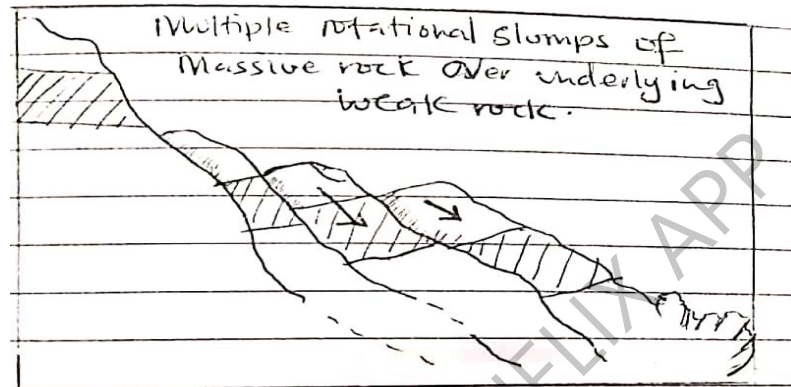 Multiple rotational slumps of
Massive rock over underlying
weak rock.
HELIX APP